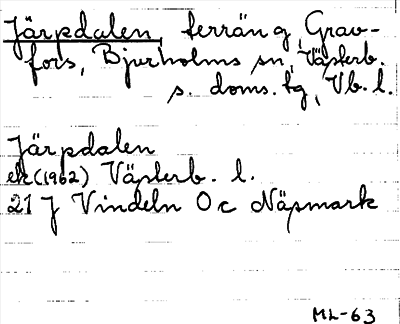 Järpdalen, terräng, Grav-
fors, Bjurholms sn, Västerb.
s. doms. tg, Vb. l.
Järpdalen
ek (1962) Västerb. l.
21 J Vindeln Oc Näsmark
ML-63